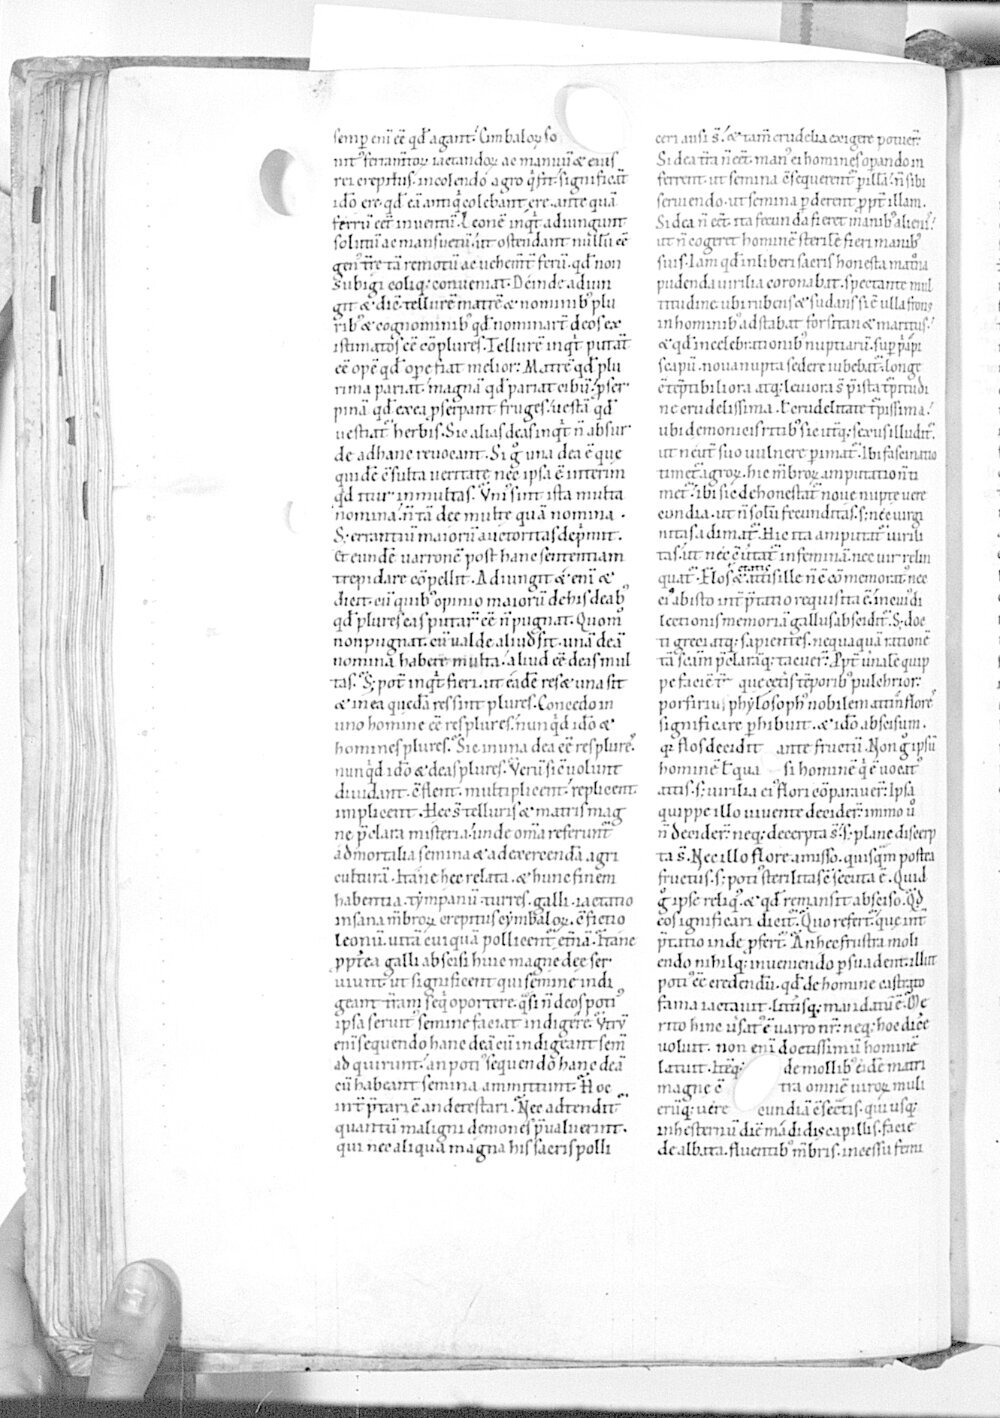 semp eni ēe qd agant. Cimbaloꝝ so
nit ferramtoꝝ iactandoꝝ ac manuū & eius
rei crepitus. in colendo agro q̄ fit. significāt
ido ere. qd eā antiq̄ colebant ere. ante quā
ferrū eet inventū. Leonē inqt adiungunt
solutū ac mansuetū. ut ostendant nullū ēe
gen tre tā remotū ac vehemt ferū. qd non
subigi coliq; conveniat. Deinde adiun
git & dic̄. tellurē matrē & nominib plu
rib & cognominib qd nominart deos ex
istimatos ēe cōplures. Tellurē inqt putāt
ēe opē qd ope fiat melior. Matrē qd plu
rima pariat. magnā qd pariat cibū. pser
pinā qd ex ea pserpant fruges. vestā qd
vestiat herbis. Sic alias deas inqt n̄ absur
de ad hanc revocant. Si g una dea ē que
quidē ̄csulta veritate nec ipsa ē. interim
qd itur in multas. Uni sint ista multa
nomina. n̄ tā dee multe quā nomina.
S; errantiū maiorū auctoritas depmit.
et eundē varronē post hanc sententiam
trepidare cōpellit. Adiungit & eni &
dicit. cū quib opinio maiorū de his deab
qd plures eas putar ēe n̄ pugnat. Quom
non pugnat. cū valde aliud sit. unā deā
nomina habere multa. aliud ēe deas mul
tas. S; pot inqt fieri. ut eadē res & una sit
& in ea quedā res sint plures. Concedo in
uno homine ēe res plures. nunqd ido &
homines plures. Sic in una dea ēe res plures.
nunqd ido & deas plures. Verū sic volunt
dividant. ̄cflent. multiplicent. replicent.
implicent. Hec s̄ telluris & matris mag
ne p̄clara misteria. unde om̄a referunt
ad mortalia semina & ad exercendā agri
culturā. Itane hec relata. & hunc finem
habentia. tympanū. turres. galli. iactatio
insana mbroꝝ. crepitus cymbaloꝝ. ̄cfictio
leonū. vitā cuiquā pollicent et̄nā. Itane
ppt̄ea galli abscisi huic magne dee ser
viunt. ut significent qui semine indi
geant tram seq̄ oportere. q̄si n̄ eos poti
ipsa servit̄ semine faciat indigere. Utrū
eni sequendo hanc deā cū indigeant sem̄
adquirunt. an poti sequendo hanc deā
cū habeant semina ammittunt. Hoc
int̄ptari ē an detestari. Nec adtendit
quantū maligni demones p̄valuerint.
qui nec aliqua magna his sacris polli
ceri ausi s̄. & tam̄ crudelia exigere potuer.
Si dea t̄ra n̄ eet. man ei homines opando in
ferrent. ut semina ̄csequerent p illā. n̄ sibi
serviendo. ut semina pderent ppt illam.
Si dea n̄ eet. ita fecunda fieret manib alienis.
ut n̄ cogeret hominē sterilē fieri manib
suis. Iam qd in liberi sacris honesta mat̄na
pudenda virilia coronabat. spectante mul
titudine. ubi rubens & sudans si ē ulla frons
in hominib adstabat forsitan & maritus.
& qd in celebrationib nuptiarū. sup p̄api
scapū. nova nupta sedere iubebat. longe
̄ctēptibiliora atq; leviora s̄ p̄ ista t̄pitudi
ne crudelissima. t̄ crudelitate t̄pissima.
ubi demonicis ritib sic utq; sexus illudit.
ut neut̄ suo vulnere pimat. Ibi fascinatio
timet̄ agroꝝ. hic mbroꝝ amputatio n̄ ti
met. ibi sic dehonestat nove nupte vere
cundia. ut n̄ solū fecunditas. s; nec virgi
nitas adimat. Hic ita amputat virili
tas. ut nec ̄cvtat in feminā. nec vir relin
quat. Et attis ille n̄ ē cōmemorat. nec
ei ab isto int̄ptatio requisita ē. in cui di
lectionis memoriā gallus abscidit. S; doc
ti greci atq; sapientes. nequaquā rationē
tā scam p̄claraq; tacuer. Ppt vnalē quip
pe faciē tr̄ que cetis tēporib pulchrior.
porfirius phylosoph nobilem attin flore
significare phibuit. & ido abscisum.
q̄ flos decidit ante fructū. Non g ipsū
hominē t̄ qua si hominē q̄ ē vocat
attis. s; virilia ei flori cōparaver. Ipsa
quippe illo vivente decider. immo u
n̄ decider. neq; decerpta s̄. s; plane discerp
ta s̄. Nec illo flore amisso. quisqm̄ postea
fructus. s; poti sterilitas ̄csecuta ē. Quid
g ipse reliq. & qd remansit absciso. Qd
eo significari dicit. Quo refert. que int̄
p̄tatio inde p̄fert. An hec frustra moli
endo nihilq; inveniendo psuadent. illut
poti ēe credendū. qd de homine castrato
fama iactavit. litisq; mandatū ē. Me
rito hinc v̄sat ē varro nr. neq; hoc dice
voluit. non eni doctissimū hominē
latuit. Iteq; de mollib eidē matri
magne ̄c tra omnē viroꝝ muli
erūq; vere cundiā ̄csecratis. qui usq;
in hesternū diē madidis capillis. facie
dealbata. fluentib mbris. incessu femi